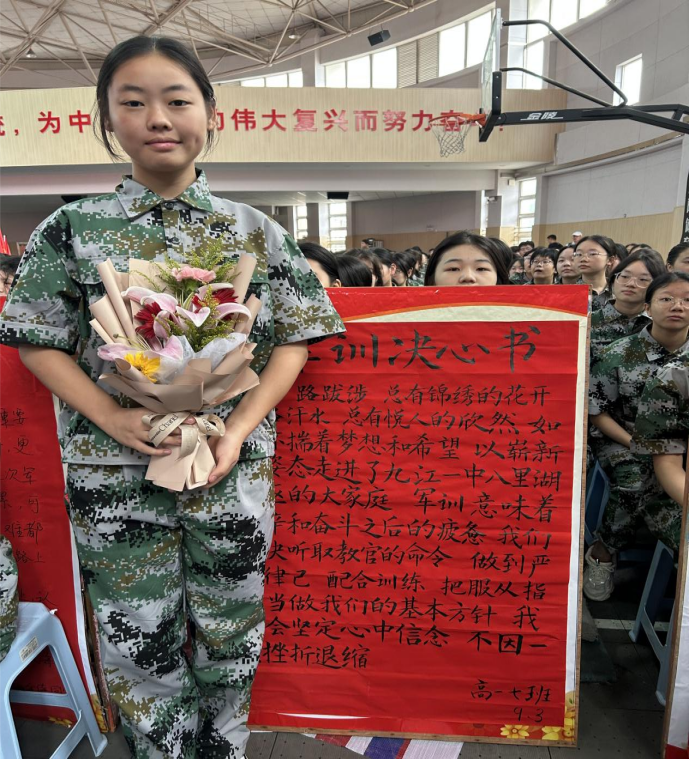 为中
的伟大复兴而努力奋
金陵
训决心书
路跋涉 总有锦绣的花开
汗水 总有悦人的欣然 如
揣着梦想和希望 以崭新
态走进了九江一中八里湖
的大家庭 军训意味着
和奋斗之后的疲惫 我们
听取教官的命令 做到严
律己 配合训练 把服从指
当做我们的基本方针 我
会坚定心中信念 不因一
挫折退缩
高一七班
9.3